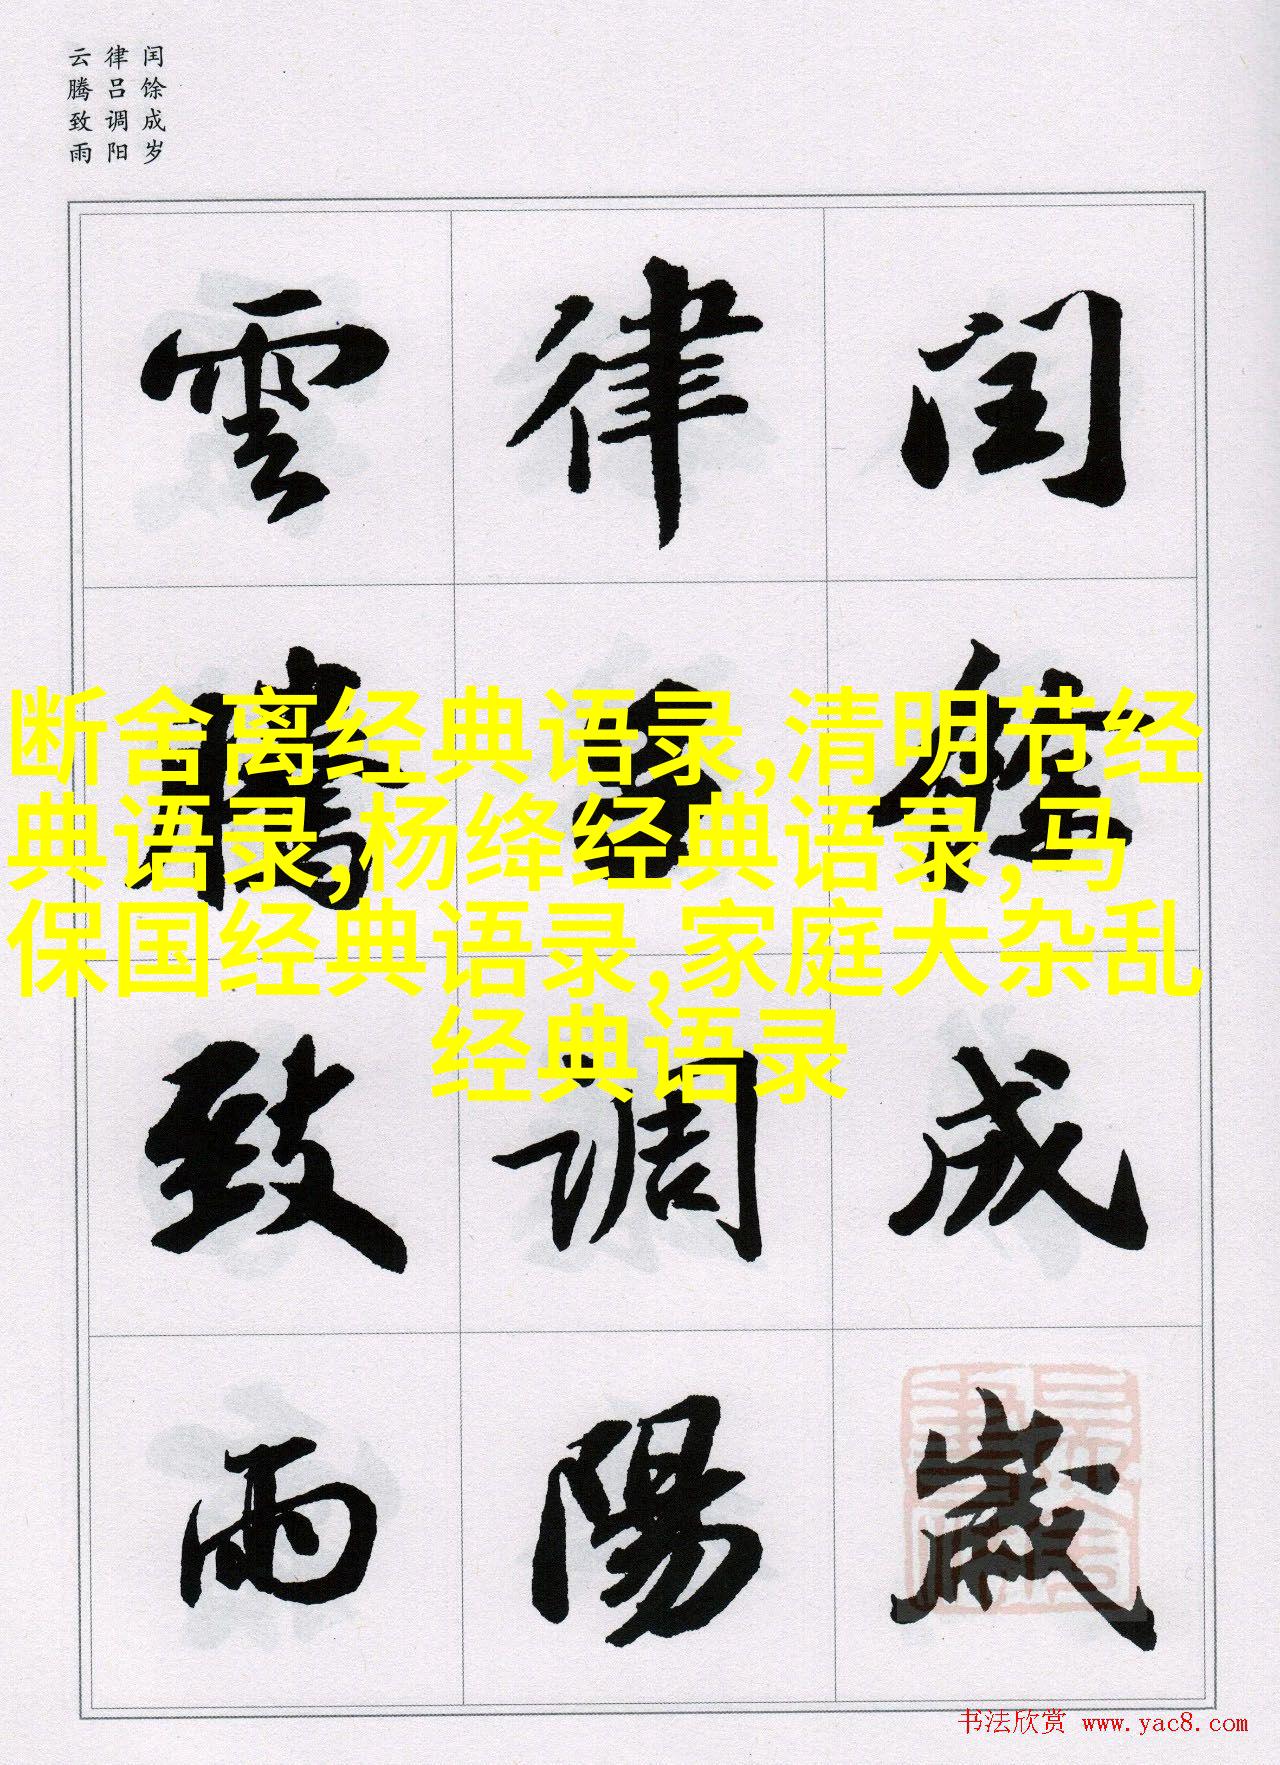 闰馀成岁
律吕调阳
云腾致雨
閏
律
雲
餘
吕
騰
成
調
致
歲
陽
雨
断舍离经典语录,清明节经
典语录,杨绛经典语录,马
保国经典语录,家庭大杂乱
经典语录
书法欣赏 www.yac8.com